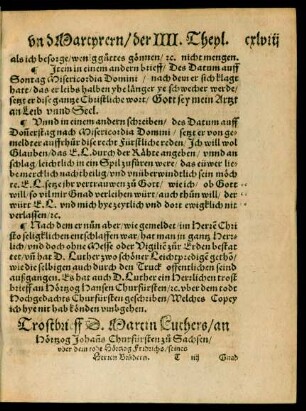 vnd Martyrern/ der IIII. Theyl. cxlviij
als ich besorge/ wenig güttes gönnen/ ꝛc. nicht mengen.
¶ Item in einem andern brieff/ Des Datum auff
Sontag Misericordia Domini/ nach dem er sich klagt
hatt/ das er leibs halben yhe länger ye schwecher werde/
setzt er dise gantze Christliche wort/ Gott sey mein Artzt
an Leib vnnd Seel.
¶ Vnnd in einem andern schreiben/ des Datum auff
Donerstag nach Misericordia Domini/ setzt er von ge-
meldter auffrhür dise recht Fürstliche reden/ Ich will wol
Glauben/ das E. L. durch der Räbte angeben/ vmb an
schlag/ leichtlich in ein Spil zufüren were/ das eüwer lie-
be mercklich nachtheilig/ vnd vnüberwindtlich sein möch
te. E. L. setze jhr vertrauwen zu Gott/ wie ich/ ob Gott
will/ so vil mir Gnad verleihen würt/ auch thůn will/ der
würt E. L. vnd mich hye zeytlich vnd dort ewigklich nit
verlassen/ ꝛc.
¶ Nach dem er nůn aber/ wie gemeldet/ im Herrē Chri
sto seligklichen entschlaffen war/ hat man in gantz Herr-
lich/ vnd doch on alle Messe oder Vigiliē zur Erden bestat
tet/ vñ hat D. Luther zwo schöner Leichtpredige gethō/
wie die selbigen auch durch den Truck offentlichen seind
außgangen. Es hat auch D. Luther ein Herrlichen trost
brieff an Hörtzog Hansen Churfürsten/ ꝛc. vber dem todt
Hochgedachts Churfürsten geschriben/ Welches Copey
ich hye mit hab könden vmbgehen.
Trostbrieff D. Martin Luthers/ an
Hörtzog Johañs Churfürsten zu Sachsen/
vber dem todt Hörtzog Fridrichs/ seines
Herren Brüdern. T iij Gnad